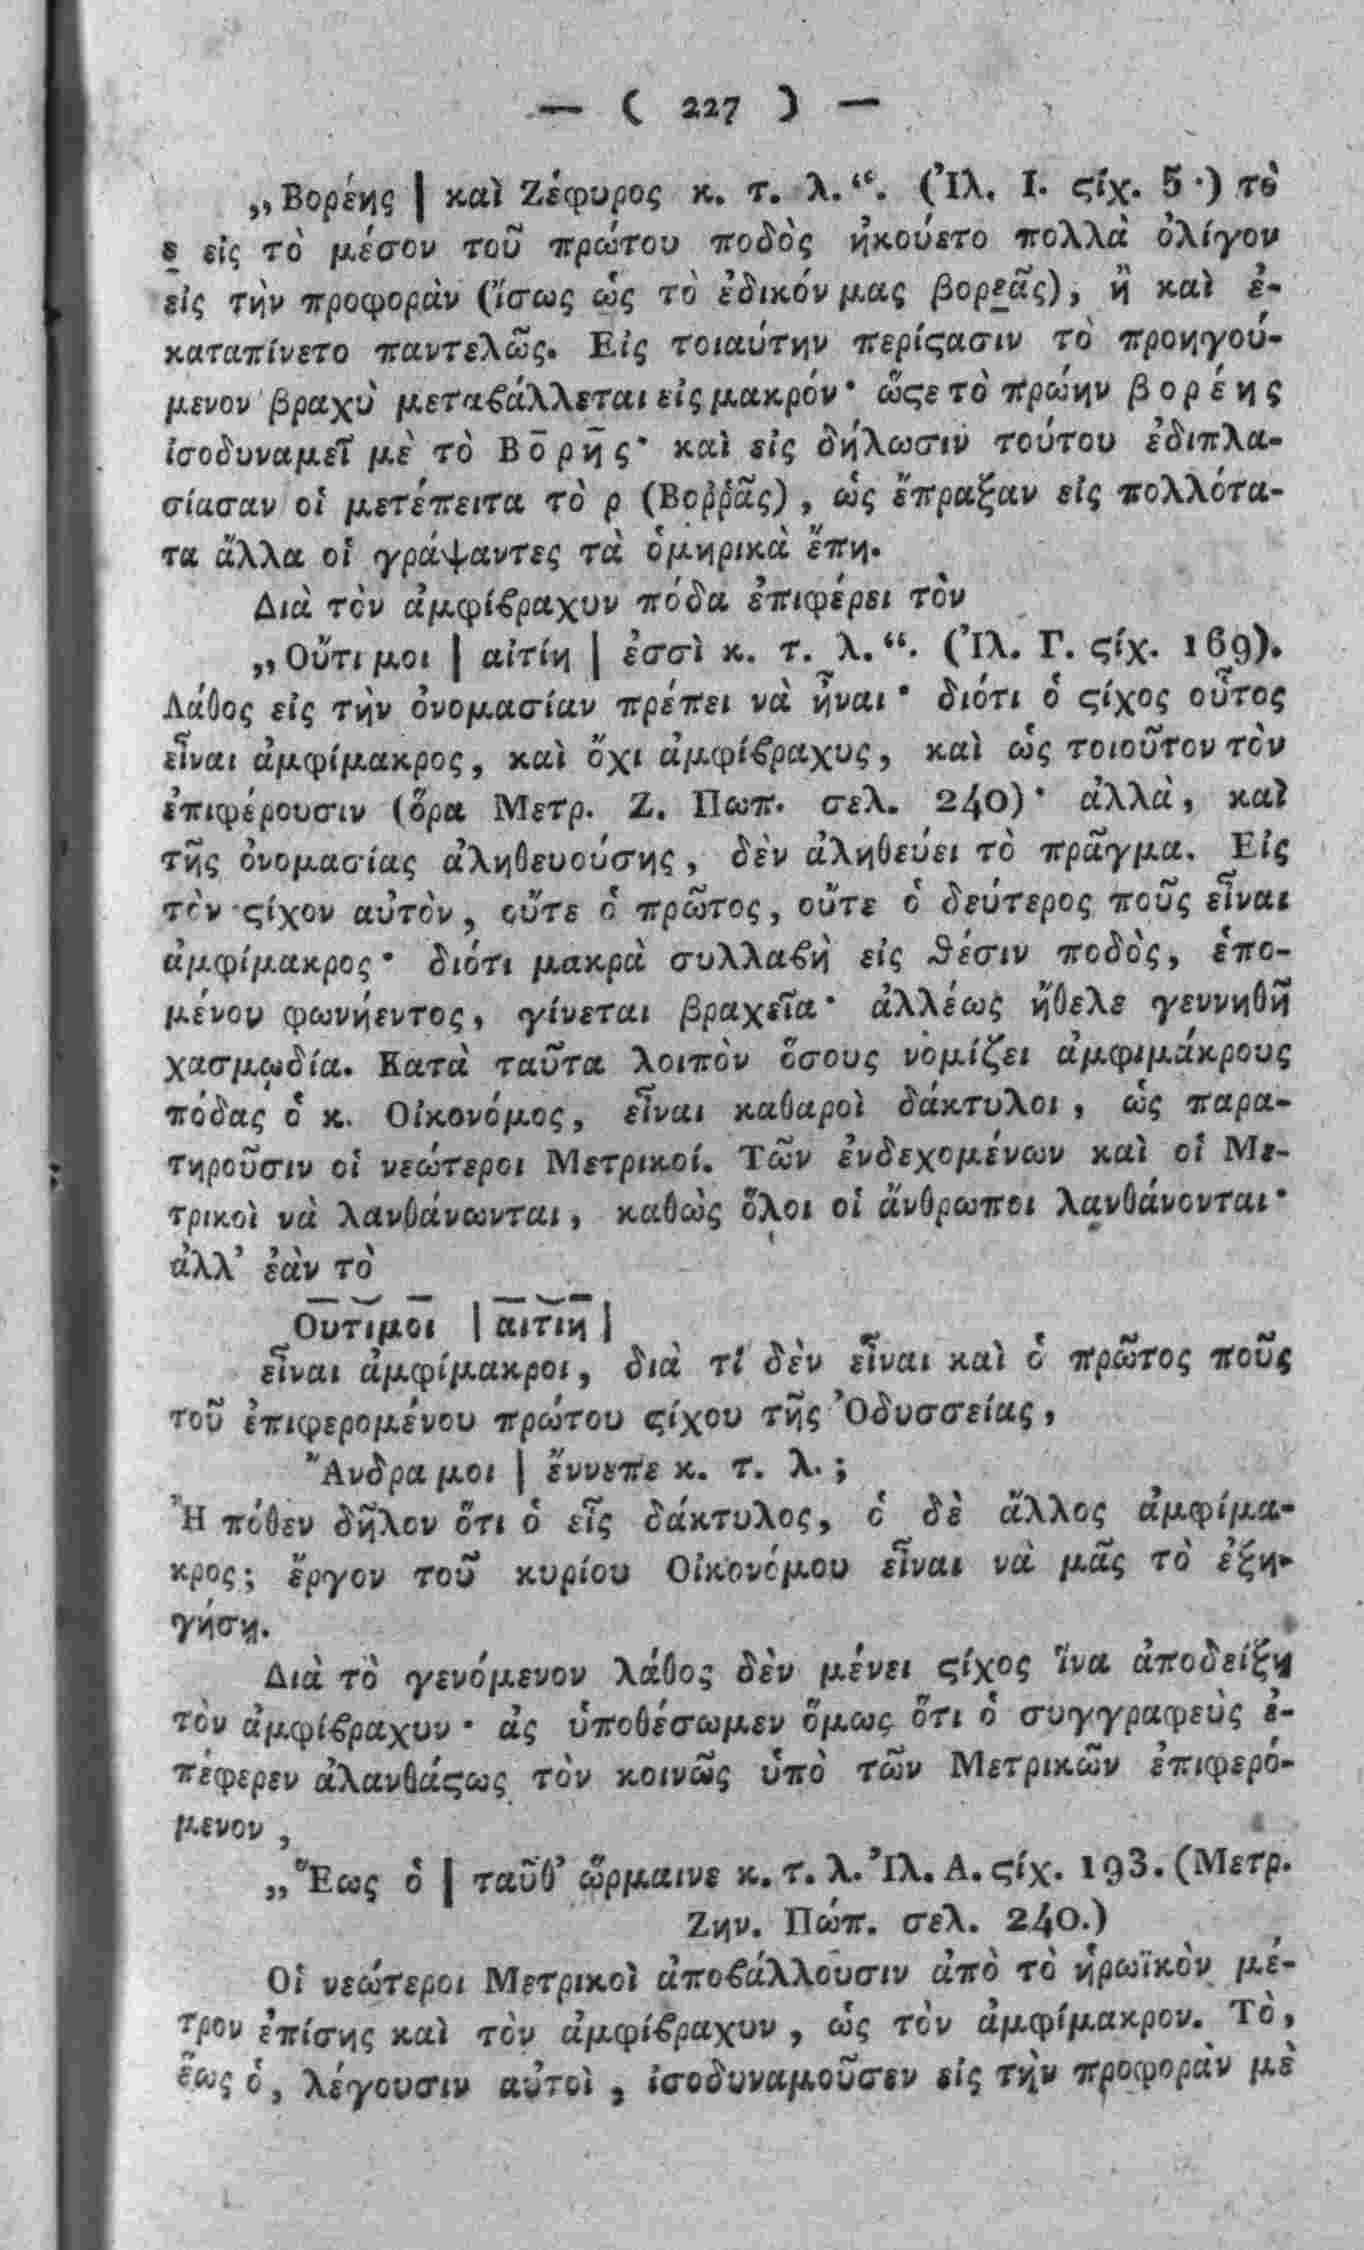 — ( 227 ) —
„Βορέης | καὶ Ζέφυρος κ. τ. λ.“. (Ἰλ. Ι. ϛίχ. 5·) τὸ
ε εἰς τὸ μέσον τοῦ πρώτου ποδὸς ἠκούετο πολλὰ ὀλίγον
εἰς τὴν προφορὰν (ἴσως ὡς τὸ ἐδικόν μας βορεᾶς), ἢ καὶ ἐ-
καταπίνετο παντελῶς. Εἰς τοιαύτην περίϛασιν τὸ προηγού-
μενον βραχὺ μεταϐάλλεται εἰς μακρόν· ὥϛε τὸ πρώην βορέης
ἰσοδυναμεῖ μὲ τὸ Βο̄ρῆς· καὶ εἰς δήλωσιν τούτου ἐδιπλα-
σίασαν οἱ μετέπειτα τὸ ρ (Βοῤῥᾶς), ὡς ἔπραξαν εἰς πολλότα-
τα ἄλλα οἱ γράψαντες τὰ ὁμηρικὰ ἔπη.
Διὰ τὸν ἀμφίϐραχυν πόδα ἐπιφέρει τὸν
„Οὔτι μοι | αἰτίη | ἐσσὶ κ. τ. λ.“. (Ἰλ. Γ. ϛίχ. 169).
Λάθος εἰς τὴν ὀνομασίαν πρέπει νὰ ἦναι· διότι ὁ ϛίχος οὗτος
εἶναι ἀμφίμακρος, καὶ ὄχι ἀμφίϐραχυς, καὶ ὡς τοιοῦτον τὸν
ἐπιφέρουσιν (ὅρα Μετρ. Ζ. Πωπ. σελ. 240)· ἀλλὰ, καὶ
τῆς ὀνομασίας ἀληθευούσης, δὲν ἀληθεύει τὸ πρᾶγμα. Εἰς
τὸν ϛίχον αὐτὸν, οὔτε ὁ πρῶτος, οὔτε ὁ δεύτερος ποῦς εἶναι
ἀμφίμακρος· διότι μακρὰ συλλαϐὴ εἰς θέσιν ποδὸς, ἑπο-
μένου φωνήεντος, γίνεται βραχεῖα· ἀλλέως ἤθελε γεννηθῆ
χασμῳδία. Κατὰ ταῦτα λοιπὸν ὅσους νομίζει ἀμφιμάκρους
πόδας ὁ κ. Οἰκονόμος, εἶναι καθαροὶ δάκτυλοι, ὡς παρα-
τηροῦσιν οἱ νεώτεροι Μετρικοί. Τῶν ἐνδεχομένων καὶ οἱ Με-
τρικοὶ νὰ λανθάνωνται, καθὼς ὅλοι οἱ ἄνθρωποι λανθάνονται·
ἀλλ’ ἐὰν τὸ
Ουτιμοι | αιτιη |
εἶναι ἀμφίμακροι, διὰ τί δὲν εἶναι καὶ ὁ πρῶτος ποῦς
τοῦ ἐπιφερομένου πρώτου ϛίχου τῆς Ὀδυσσείας,
Ἄνδρα μοι | ἔννεπε κ. τ. λ.;
Ἢ πόθεν δῆλον ὅτι ὁ εἷς δάκτυλος, ὁ δὲ ἄλλος ἀμφίμα-
κρος; ἔργον τοῦ κυρίου Οἰκονόμου εἶναι νὰ μᾶς τὸ ἐξη-
γήσῃ.
Διὰ τὸ γενόμενον λάθος δὲν μένει ϛίχος ἵνα ἀποδείξῃ
τὸν ἀμφίϐραχυν· ἂς ὑποθέσωμεν ὅμως ὅτι ὁ συγγραφεὺς ἐ-
πέφερεν ἀλανθάϛως τὸν κοινῶς ὑπὸ τῶν Μετρικῶν ἐπιφερό-
μενον,
„Ἕως ὁ | ταῦθ’ ὥρμαινε κ. τ. λ. Ἰλ. Α. ϛίχ. 193. (Μετρ.
Ζην. Πώπ. σελ. 240.)
Οἱ νεώτεροι Μετρικοὶ ἀποϐάλλουσιν ἀπὸ τὸ ἡρωϊκὸν μέ-
τρον ἐπίσης καὶ τὸν ἀμφίϐραχυν, ὡς τὸν ἀμφίμακρον. Τὸ,
ἕως ὁ, λέγουσιν αὐτοὶ, ἰσοδυναμοῦσεν εἰς τὴν προφορὰν μὲ